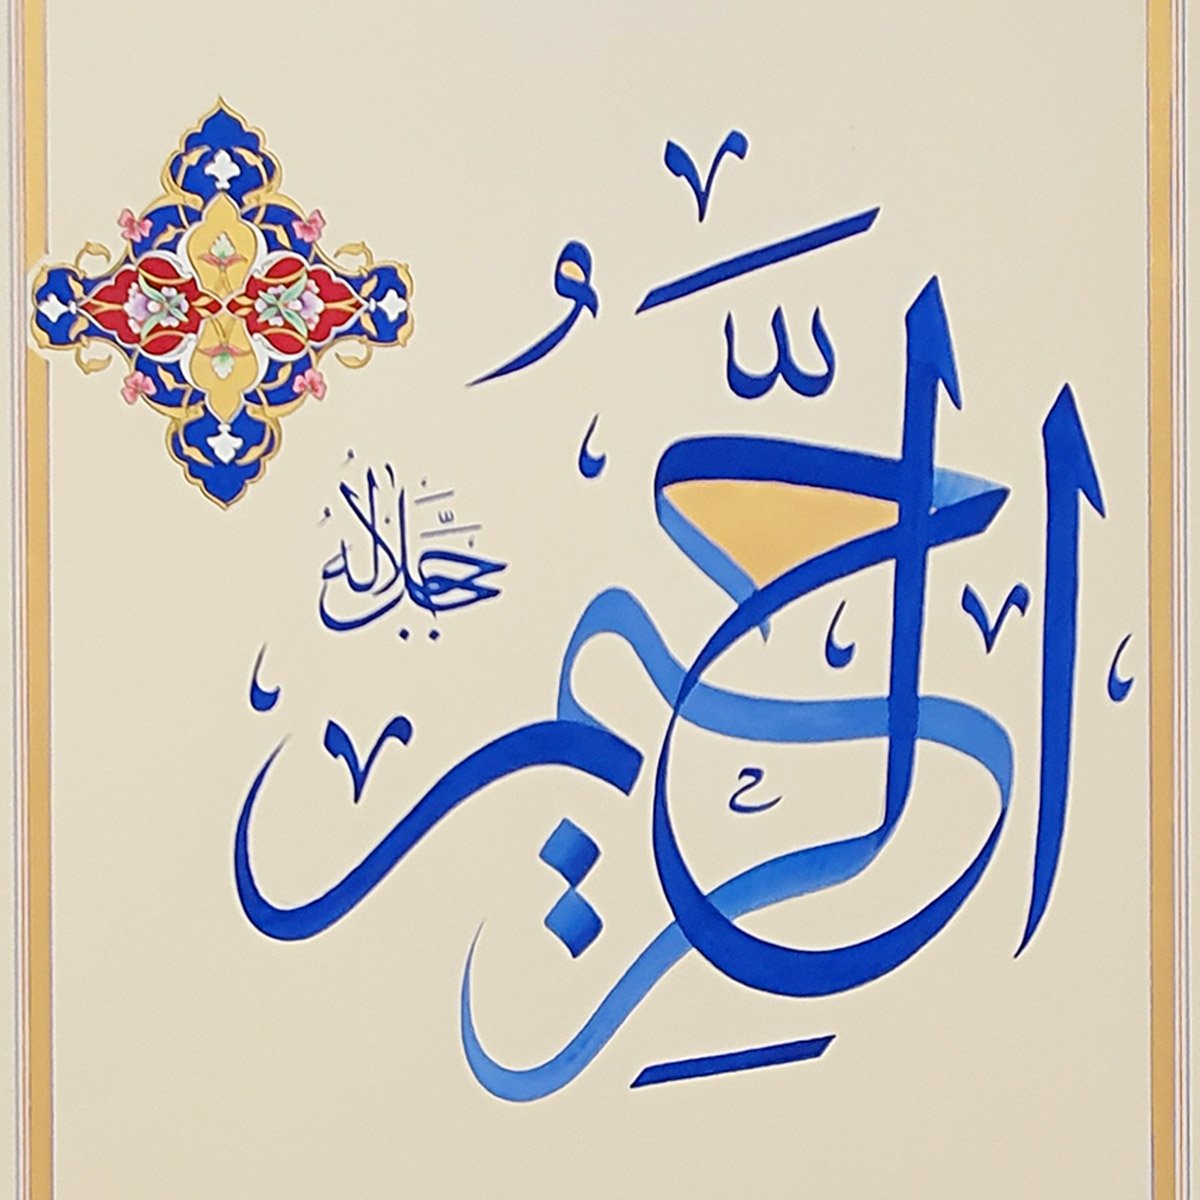 الرَّحِيمُ
جَلَّ جَلَالُهُ